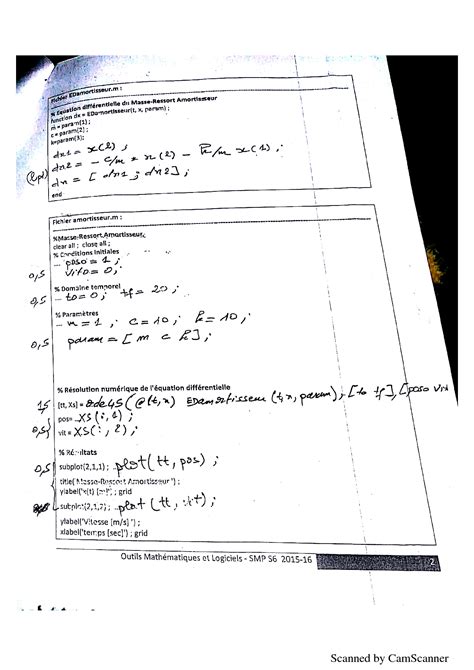 Fichier EDamortisseur.m :
% Equation différentielle du Masse-Ressort Amortisseur
function dx = EDamortisseur(t, x, param) ;
m = param(1) ;
c = param(2) ;
k=param(3);
dx1 = x(2) ;
dx2 = - c/m * x(2) - k/m x(1) ;
dx = [ dx1 ; dx2] ;
end
Fichier amortisseur.m :
%Masse-Ressort Amortisseur
clear all ; close all ;
% Conditions initiales
pos0 = 1 ;
0,5 vit0 = 0 ;
% Domaine temporel
0,5 t0 = 0 ; tf = 20 ;
% Paramètres
m = 1 ; c = 10 ; k = 10 ;
0,5 param = [ m c k ] ;
% Résolution numérique de l'équation différentielle
1,5 [tt, Xs] = ode45 ( @(t,x) EDamortisseur (t,x, param), [t0 tf], [pos0 vit
pos= XS(:, 1) ;
0,5 vit = XS(:, 2) ;
% Résultats
0,5 subplot(2,1,1) ; plot( tt, pos) ;
title('Masse-Ressort Amortisseur') ;
ylabel('x(t) [m]') ; grid
subplot(2,1,2) ; plot ( tt, vit) ;
ylabel('Vitesse [m/s]') ;
xlabel('temps [sec]') ; grid
Outils Mathématiques et Logiciels - SMP S6 2015-16
2
Scanned by CamScanner